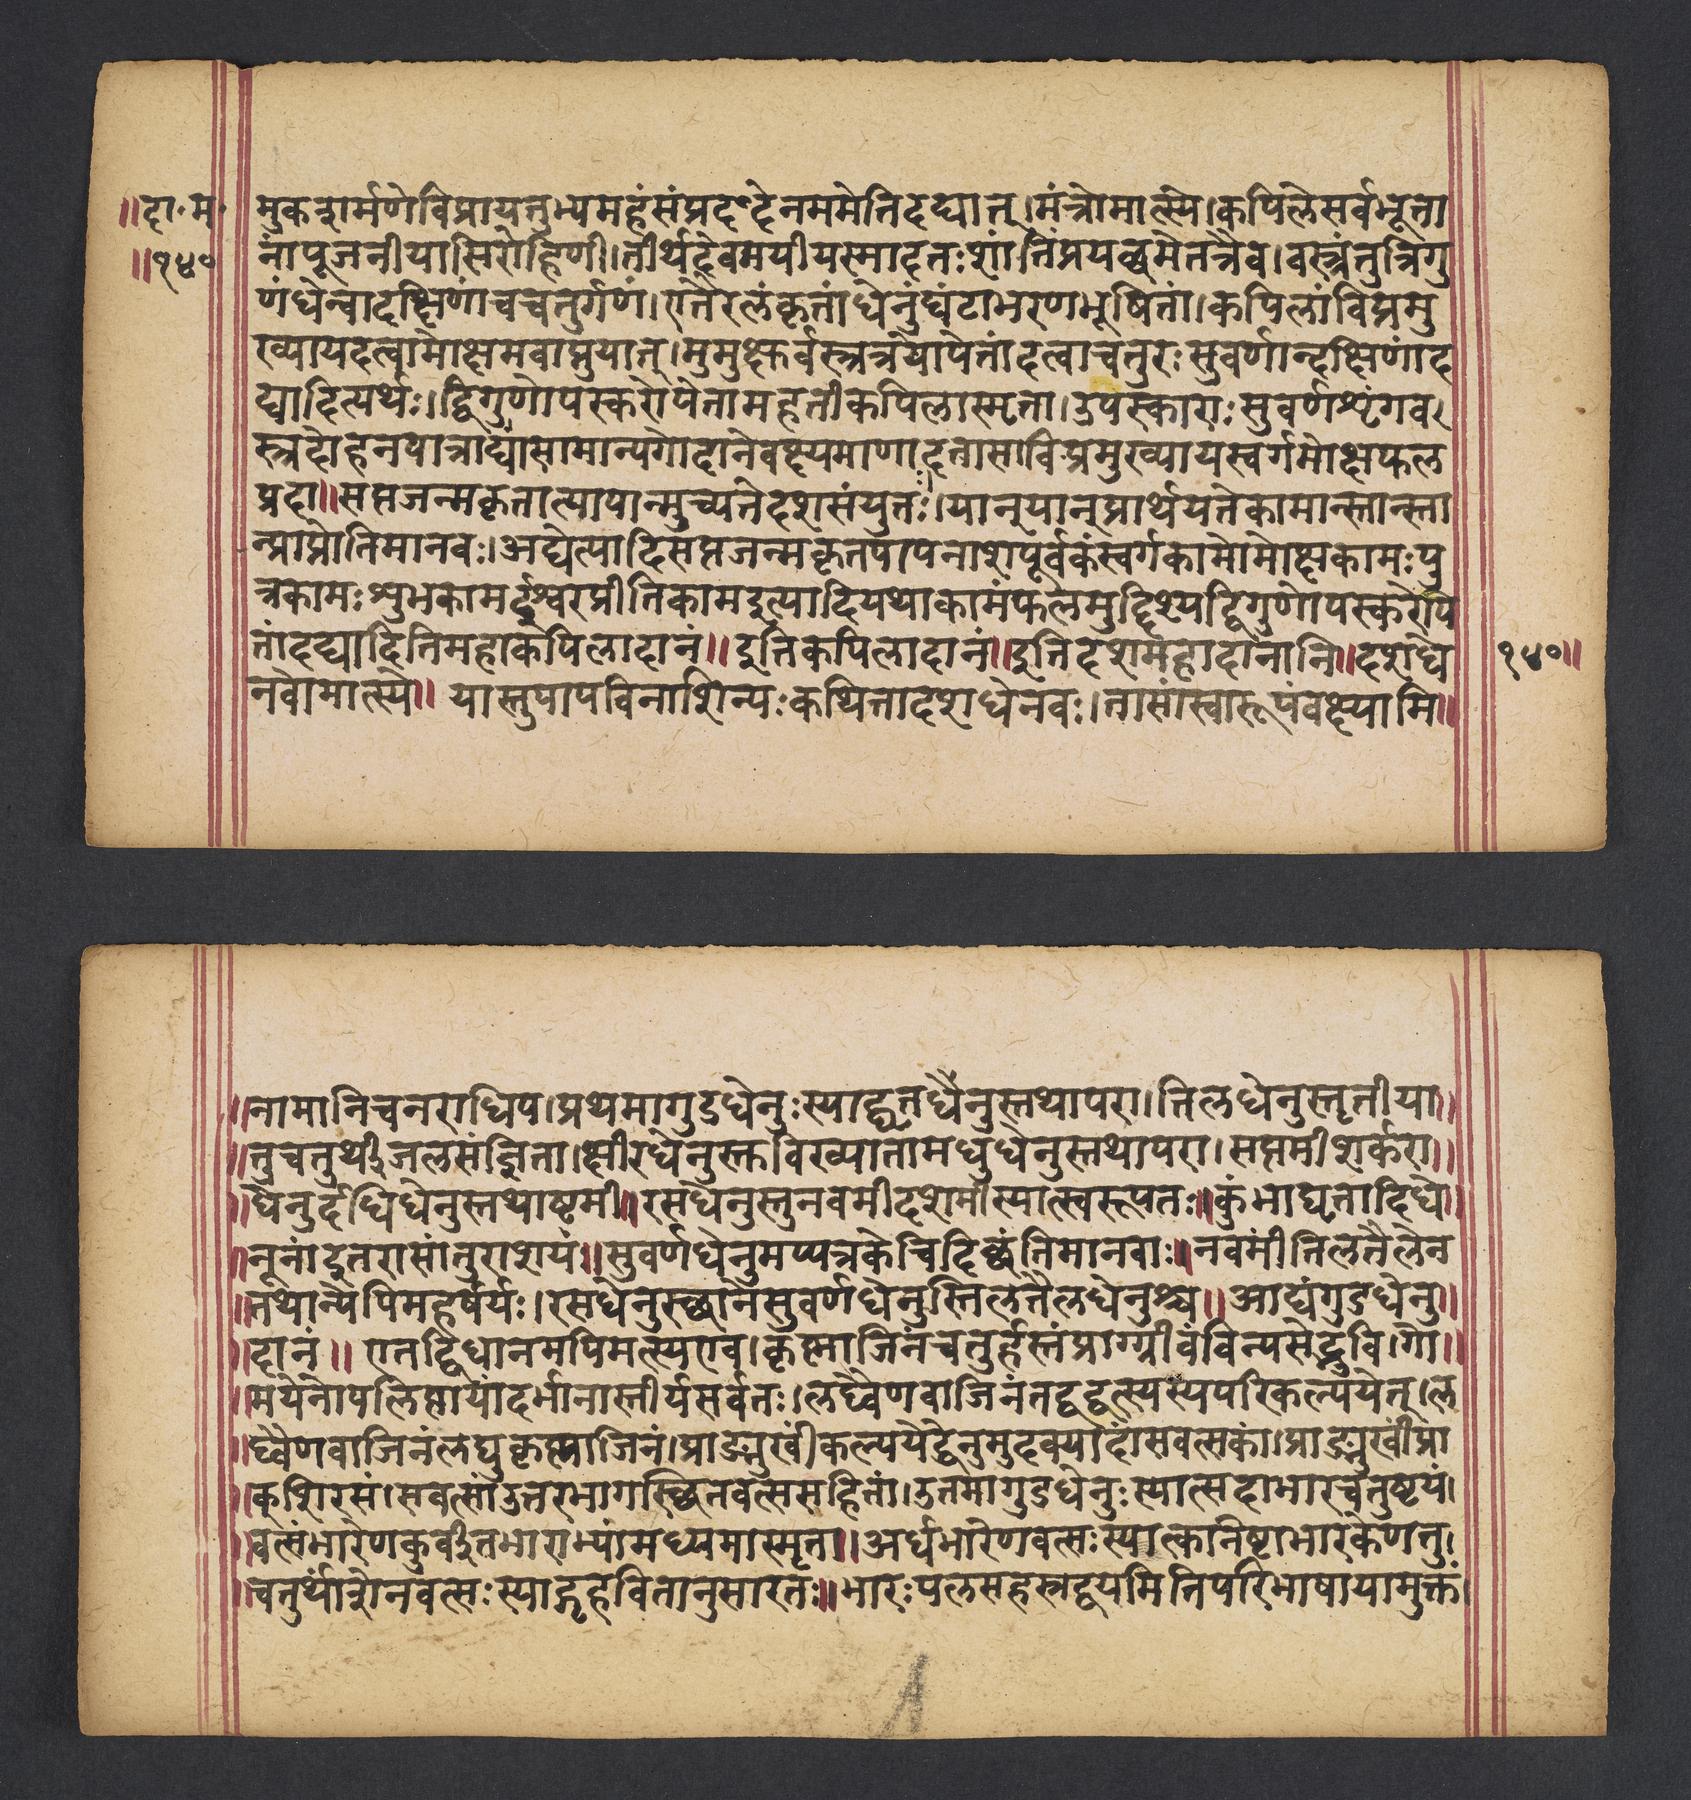 ॥दा॰म॰
॥१४०
मुकशर्मणेविप्रायतुभ्यमहंसंप्रददेनममेतिदद्यात्।मंत्रोमात्स्ये।कपिलेसर्वभूता
नांपूजनीयासिरोहिणी।तीर्थदेवमयीयस्मादतःशांतिंप्रयछमेतत्रैव।वस्त्रंतुत्रिगु
णंधेन्वादक्षिणांचचतुर्गणं।एतैरलंकृतांधेनुंघंटाभरणभूषितां।कपिलांविप्रमु
ख्यायदत्वामोक्षमवाप्नुयात्।मुमुक्षुर्वस्त्रत्रयोपेतांदत्वाचतुरःसुवर्णान्दक्षिणांद
द्यादित्यर्थः।द्विगुणोपस्करोपेतामहतीकपिलास्मृता।उपस्काराःसुवर्णशृंगव
स्त्रदोहनपात्राद्याःसामान्यगोदानेवक्ष्यमाणादत्तासाविप्रमुख्यायस्वर्गमोक्षफल
प्रदा॥सप्तजन्मकृतात्पापान्मुच्यतेदशसंयुतः।यान्यान्प्रार्थयतेकामान्स्तान्स्ता
न्प्राप्नोतिमानवः।अद्येत्यादिसप्तजन्मकृतपापनाशपूर्वकंस्वर्गकामोमोक्षकामःपु
त्रकामःशुभकामईश्वरप्रीतिकामइत्यादियथाकामंफलमुद्दिश्यद्विगुणोपस्करोपे
तांदद्यादितिमहाकपिलादानं॥इतिकपिलादानं॥इतिदशमहादानानि॥दशधे
१४०॥
नवोमात्स्ये॥ यास्तुपापविनाशिन्यःकथितादशधेनवः।तासांस्वारूपंवक्ष्यामि॥
॥नामानिचनराधिप।प्रथमागुडधेनुःस्याद्घृतधेनुस्तथापरा।तिलधेनुस्तृतीया॥
॥तुचतुर्थीजलसंज्ञिता।क्षीरधेनुस्तविख्यातामधुधेनुस्तथापरा।सप्तमीशर्करा॥
॥धेनुर्दधिधेनुस्तथाष्टमी॥रसधेनुस्तुनवमीदशमीस्यात्स्वरूपतः॥कुंभाघृतादिधे॥
॥नूनांइतरासांतुराशयं॥सुवर्णधेनुमप्यत्रकेचिदिछंतिमानवाः॥नवमींतिलतैलेन
॥तथान्येपिमहर्षर्यः।रसधेनुस्छानेसुवर्णधेनुस्तिलतैलधेनुश्च॥आद्यंगुडधेनु॥
॥दानं॥ एतद्विधानमपिमत्स्यएव।कृष्णाजिनंचतुर्हस्तंप्राग्ग्रीवंविन्यसेद्भुवि।गो॥
॥मयेनोपलिप्तायांदर्भानास्तीर्यसर्वतः।लघ्वैणवाजिनंतद्वद्वत्स्यस्यपरिकल्पयेत्।ल
॥घ्वैणवाजिनंलघुकृष्णाजिनं।प्राङ्मुखींकल्पयेद्धेनुमुदक्यादांसवत्सकां।प्राङ्मुखींप्रा
॥क्शिरसं।सवत्सांउत्तरभागस्छितवत्ससहितां।उतमागुडधेनुःस्यात्सदाभारचतुष्टयं।
॥वत्संभारेणकुर्वीतभाराभ्यांमध्यमास्मृता॥अर्धभारेणवत्सःस्यात्कानिष्टाभारकेणतु।
॥चतुर्थांशेनवत्सःस्याद्गृहवितानुसारतः॥भारःपलसहस्त्रद्वयमितिपरिभाषायामुक्तं।